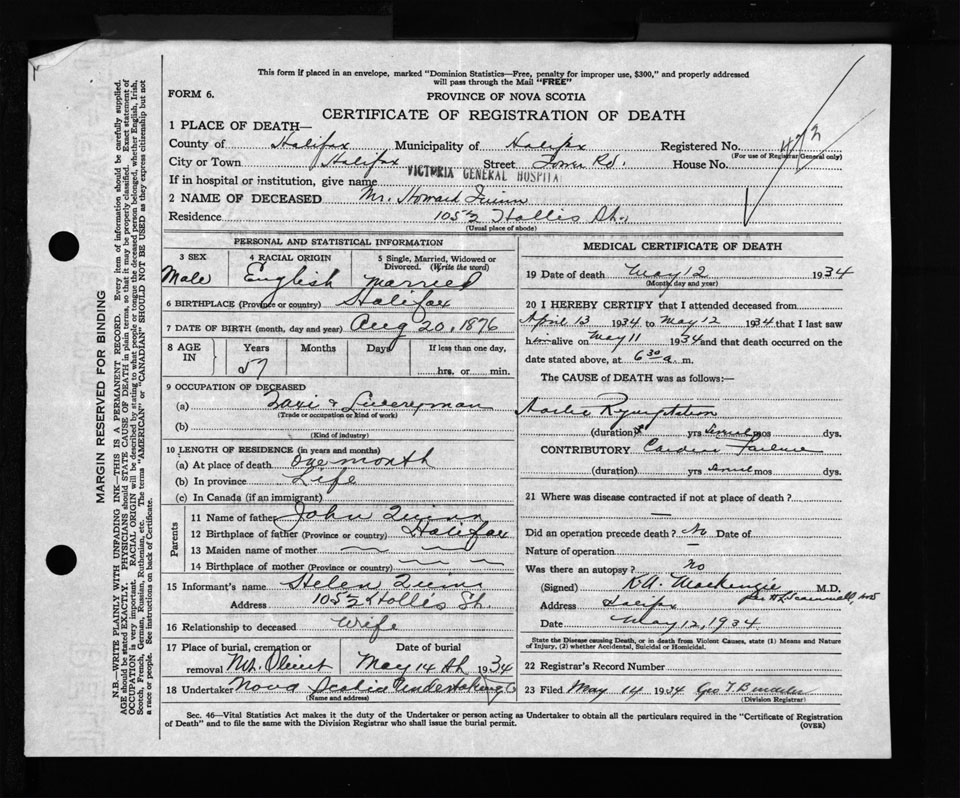 This form if placed in an envelope, marked "Dominion Statistics—Free, penalty for improper use, $300," and properly addressed
will pass through the Mail "FREE"
FORM 6.
PROVINCE OF NOVA SCOTIA
CERTIFICATE OF REGISTRATION OF DEATH
1 PLACE OF DEATH—
County of Halifax Municipality of Halifax Registered No. 472
(For use of Registrar General only)
City or Town Halifax Street Tower Rd. House No.
If in hospital or institution, give name VICTORIA GENERAL HOSPITAL
2 NAME OF DECEASED Mr. Howard Quinn
Residence 105½ Hollis St.
(Usual place of abode)
PERSONAL AND STATISTICAL INFORMATION
3 SEX 4 RACIAL ORIGIN 5 Single, Married, Widowed or Divorced. (Write the word)
Male English Married
6 BIRTHPLACE (Province or country) Halifax
7 DATE OF BIRTH (month, day and year) Aug 20, 1876
8 AGE IN Years Months Days If less than one day,
57 hrs. or min.
9 OCCUPATION OF DECEASED
(a) Taxi & Liveryman
(Trade or occupation or kind of work)
(b)
(Kind of industry)
10 LENGTH OF RESIDENCE (in years and months)
(a) At place of death one month
(b) In province Life
(c) In Canada (if an immigrant)
Parents
11 Name of father John Quinn
12 Birthplace of father (Province or country) Halifax
13 Maiden name of mother
14 Birthplace of mother (Province or country)
15 Informant's name Helen Quinn
Address 105½ Hollis St.
16 Relationship to deceased Wife
17 Place of burial, cremation or removal Mt. Olivet Date of burial May 14th 1934
18 Undertaker Nova Scotia Undertaking Co
(Name and address)
MEDICAL CERTIFICATE OF DEATH
19 Date of death May 12 1934
(Month, day and year)
20 I HEREBY CERTIFY that I attended deceased from
April 13 1934 to May 12 1934 that I last saw
him alive on May 11 1934 and that death occurred on the
date stated above, at 6 30 a. m.
The CAUSE of DEATH was as follows:—
Aortic Regurgitation
(duration) yrs several mos dys.
CONTRIBUTORY Cardiac Failure
(duration) yrs mos dys.
21 Where was disease contracted if not at place of death?
Did an operation precede death? No Date of
Nature of operation —
Was there an autopsy? no
(Signed) K.A. MacKenzie M.D.
Address Halifax
Date May 12, 1934
State the Disease causing Death, or in death from Violent Causes, state (1) Means and Nature
of Injury, (2) whether Accidental, Suicidal or Homicidal.
22 Registrar's Record Number
23 Filed May 14 1934 Geo T.
(Division Registrar)
Sec. 46—Vital Statistics Act makes it the duty of the Undertaker or person acting as Undertaker to obtain all the particulars required in the "Certificate of Registration
of Death" and to file the same with the Division Registrar who shall issue the burial permit. (OVER)
MARGIN RESERVED FOR BINDING
N.B.—WRITE PLAINLY WITH UNFADING INK—THIS IS A PERMANENT RECORD. Every item of information should be carefully supplied.
AGE should be stated EXACTLY. PHYSICIANS should STATE CAUSE OF DEATH in plain terms, so that it may be properly classified. Exact statement of
OCCUPATION is very important. RACIAL ORIGIN will be described by stating to what people or tongue the deceased person belonged, whether English, Irish,
Scotch, French, German, Russian, Ruthenian, etc. The terms "AMERICAN" or "CANADIAN" SHOULD NOT BE USED as they express citizenship but not
a race or people. See instructions on back of Certificate.